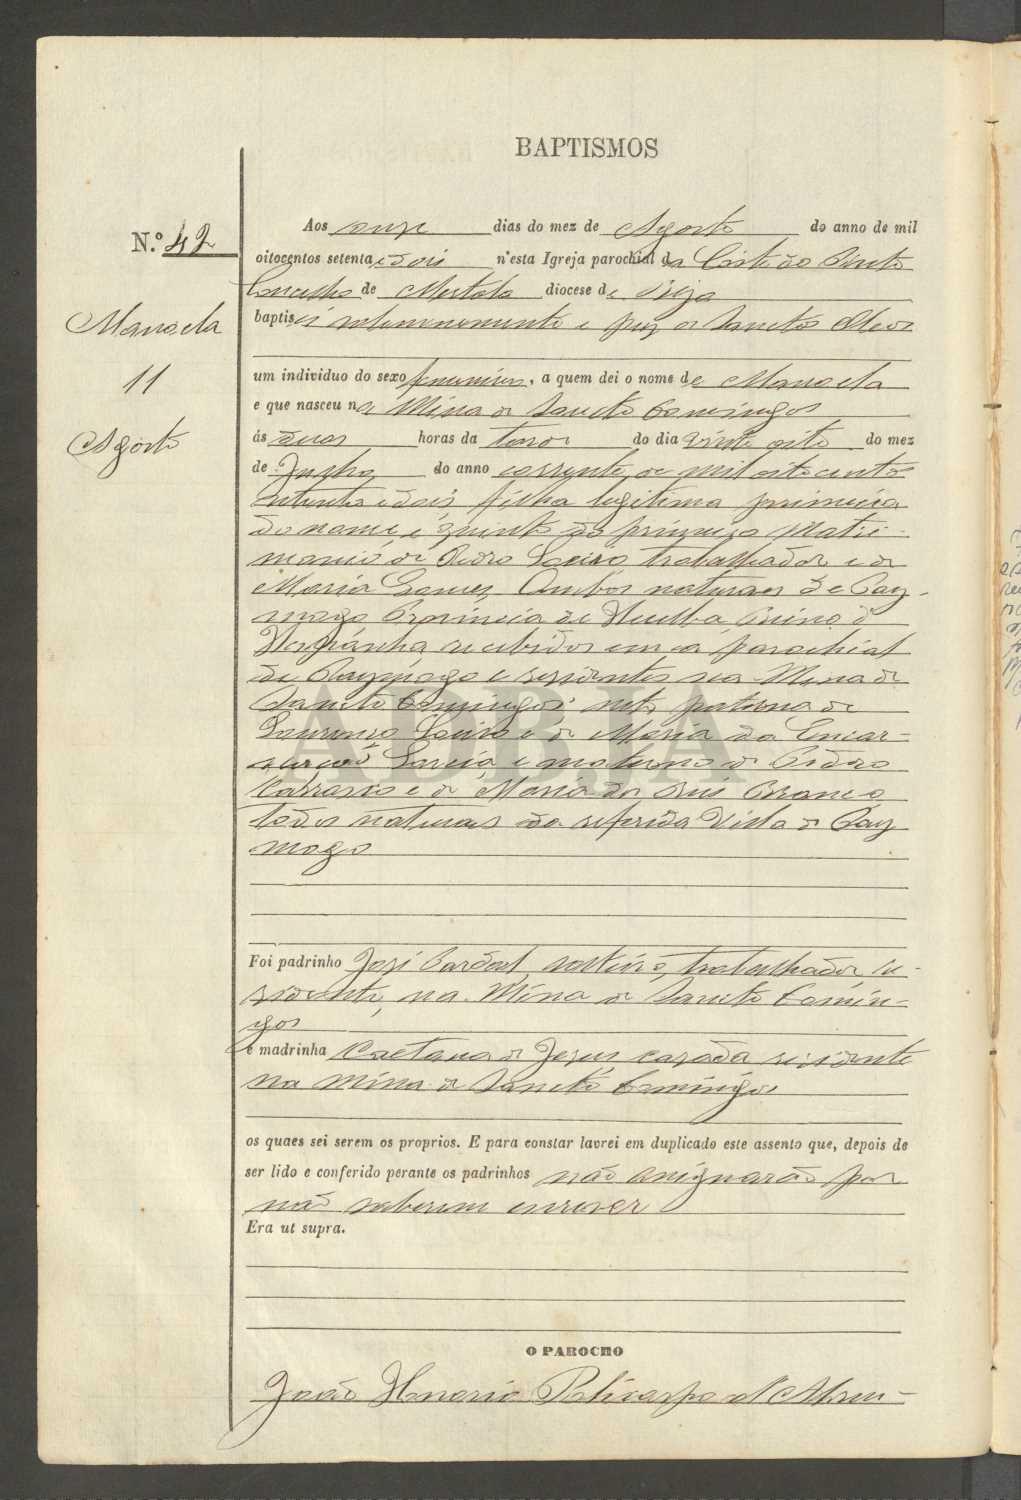 BAPTISMOS
N.º 42
Manoela
11
Agosto
Aos onze dias do mez de Agosto do anno de mil
oitocentos setenta e dois n'esta Igreja parochial da Corte do Pinto
Concelho de Mertola diocese de Beja
baptisei solemnemente e puz os Sanctos Oleos
um individuo do sexo femenino, a quem dei o nome de Manoela
e que nasceu na Mina de Sancto Domingos
ás duas horas da tarde do dia vinte oito do mez
de Junho do anno corrente de mil oito centos
setenta e dois, filha legitima primeira
do nome e quinta do primeiro Matri-
monio de Pedro trabalhador e de
Maria Gomes Ambos naturaes de Pay-
mogo Provincia de Huelba Reino d'
Hespanha recebidos em a parochial
de Paymogo e residentes na Mina de
Sancto Domingos; neta paterna de
Lourenço e de Maria da Encar-
nação Garcia e materna de Pedro
Carrasco e de Maria do Branco
todos naturaes da referida Villa de Pay
mogo
Foi padrinho José Cardal, solteiro, trabalhador, re-
sidente, na Mina de Sancto Domin-
gos
e madrinha Caetana de Jesus casada residente
na Mina de Sancto Domingos
os quaes sei serem os proprios. E para constar lavrei em duplicado este assento que, depois de
ser lido e conferido perante os padrinhos não assignarão por
não saberem escrever
Era ut supra.
O PAROCHO
João Honorio Policarpo d'Abreu
ADBJA